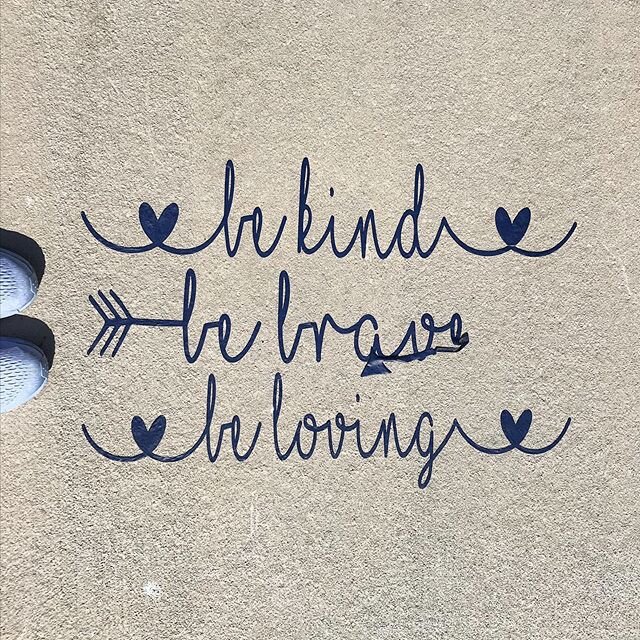 be kind
be brave
be loving